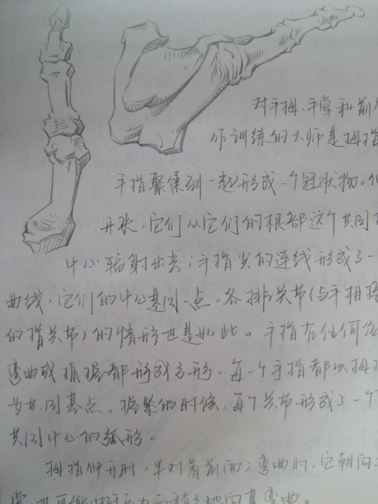 对手拇、手掌和前
作训练的大师是拇指
手指聚集到一起形成一个冠状物。
开张，它们从它们的根部这个共同
中心辐射出去；手指尖的连线形成了一
曲线，它们的中心是同一点。各排关节(与手相
的指关节)的情形也是如此。手指在任何
弯曲或抓握都形成弓形，每一个手指都以拇
为共同基点，握紧的时候，每个关节形成了一个
共同中心的弧形。
拇指伸开时，半对着前面；弯曲时，它朝向